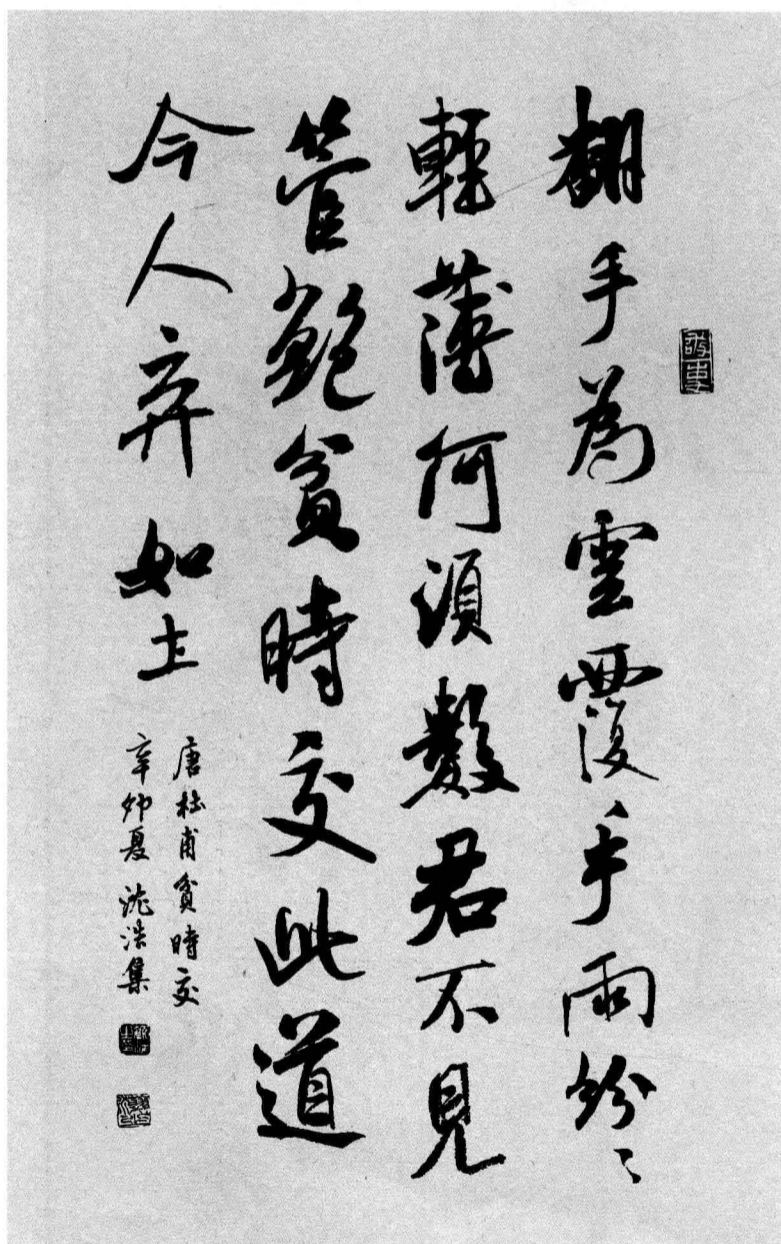 翻手為雲覆手雨紛〻
輕薄何須數君不見
管鮑貧時交此道
今人弃如土
唐杜甫貧時交
辛卯夏沈浩集